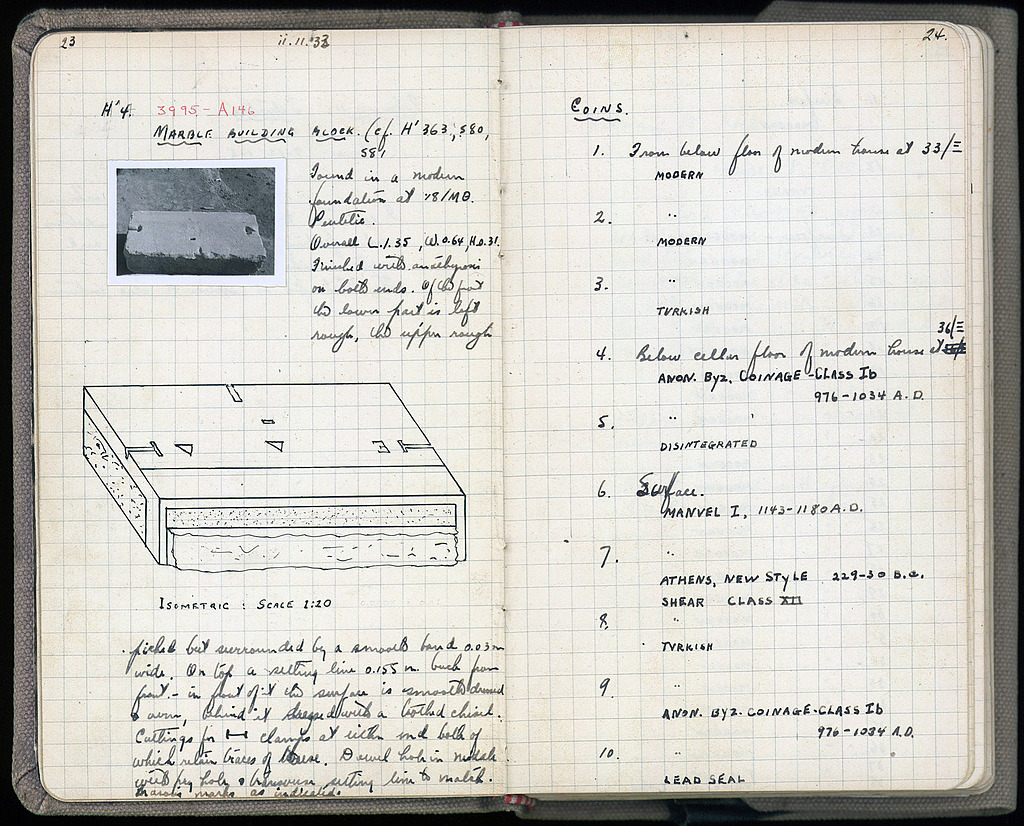 23
ii.11.33
H'4. 3995 - A146
MARBLE BUILDING BLOCK. (cf. H'363, 580,
581
Found in a modern
foundation at 78/ΜΘ.
Pentelic.
Overall L.1.35, W.0.64, H.0.31.
Finished with anathyrosis
on both ends. Of the front
the lower part is left
rough, the upper rough
ISOMETRIC : SCALE 1:20
picked but surrounded by a smooth band 0.03 m
wide. On top a setting line 0.155 m. back from
front. - in front of it the surface is smooth dressed
behind it dressed with a toothed chisel.
Cuttings for H clamps at either end both of
which retain traces of these. Dowel hole in middle
with pry hole & transverse setting line to match.
Mason's marks as indicated.
24.
COINS.
1. From below floor of modern house at 33/Ξ
MODERN
2. "
MODERN
3. "
TURKISH
36/Ξ
4. Below cellar floor of modern house at
ANON. BYZ. COINAGE - CLASS Ib
976-1034 A.D.
5. "
DISINTEGRATED
6. Surface.
MANUEL I, 1143-1180 A.D.
7. "
ATHENS, NEW STYLE 229-30 B.C.
SHEAR CLASS XII
8. "
TURKISH
9 "
ANON. BYZ. COINAGE-CLASS Ib
976-1034 A.D.
10. "
LEAD SEAL